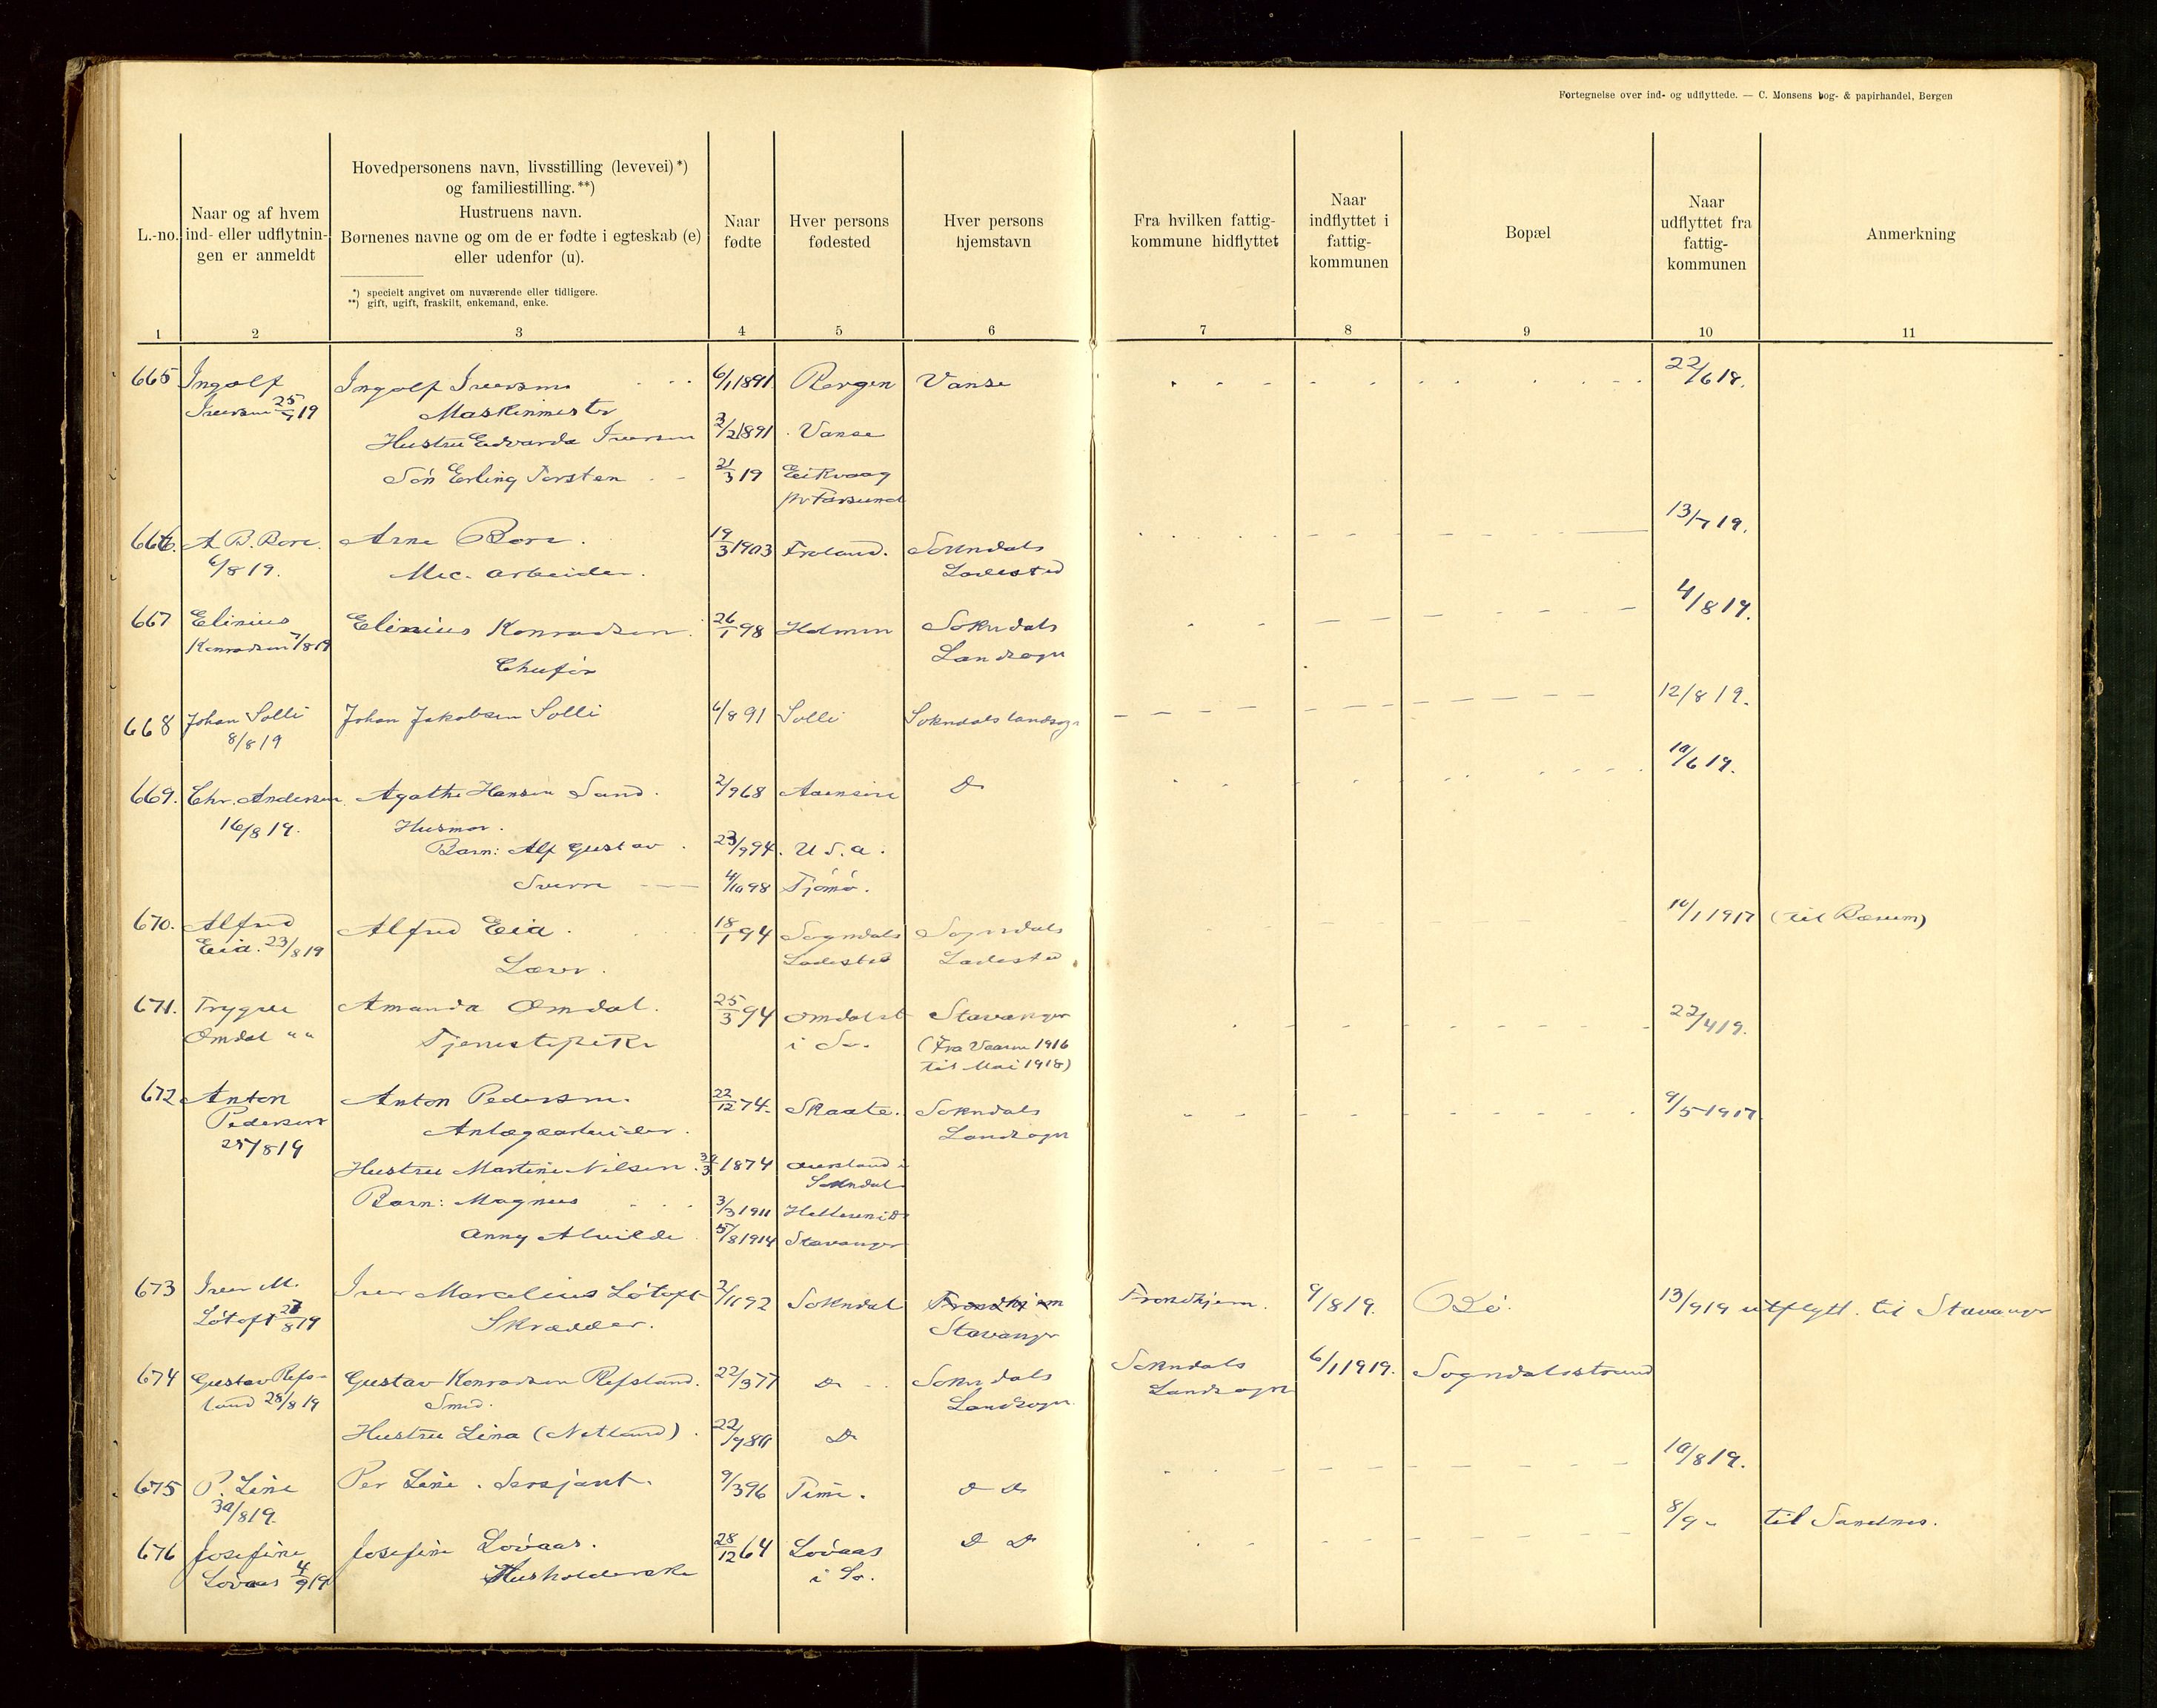 Fortegnelse over ind- og udflyttede. — C. Monsens bog- & papirhandel, Bergen
L.-no.
Naar og af hvem
ind- eller udflytnin-
gen er anmeldt
Hovedpersonens navn, livsstilling (levevei)*)
og familiestilling.**)
Hustruens navn.
Børnenes navne og om de er fødte i egteskab (e)
eller udenfor (u).
*) specielt angivet om nuværende eller tidligere.
**) gift, ugift, fraskilt, enkemand, enke.
Naar
fødte
Hver persons
fødested
Hver persons
hjemstavn
Fra hvilken fattig-
kommune hidflyttet
Naar
indflyttet i
fattig-
kommunen
Bopæl
Naar
udflyttet fra
fattig-
kommunen
Anmerkning
1 2 3 4 5 6 7 8 9 10 11
665 Ingolf Ingolf Iversen 6/1 1891 Bergen Vanse 22/6 18.
Iversen 19 Maskinmester
Hustru Edvarda Iversen 1891 Vanse
Søn Erling Torsten 21/3 19 Eikvaag
pr Farsund
666. A B. Bore. Arne Bore. 19/3 1903 Froland. Sokndals 13/7 19.
6/8 19. Mec. arbeider. Ladested
667 Elinius Elinius Konradsen. 26/1 98 Holmen Sokndals 4/8 19.
Konradsen 7/8 19 Landsogn
Chufør
668 Johan Solli Johan Jakobsen Solli 6/8 91 Solli Sokndals landsogn 12/8 19.
8/8 19
669. Chr. Andersen Agathe Hansen Sand. 2/9 68 Aaensire D 10/6 19.
16/8 19. Husmor.
Barn: Alf Gustav 23/9 94. U.S.a.
Sverre 4/10 98 Tjømø.
670. Alfred Alfred Eia. 18/1 94 Sogndals Sogndals 10/1 1917 (til Bærum)
Eia. 23/8 19 Lærer. Ladested Ladested
671. Trygve Amanda Omdal. 25/3 94 Omdal Stavanger 22/4 19.
Omdal " " Tjenestepike i S. (Fra Vaaren 1916
til Mai 1918)
672 Anton Anton Pedersen. 22/12 74. Skaate. Sokndals 9/5 1917.
Pedersen Anlægsarbeider. Landsogn
25/8 19
Hustru Martine Nilsen. 1874 i
Sokndal
Barn: Magnus 3/3 1911
Anny Alvilde 5/8 1914 Stavanger
673 Iver M. Iver Marcelius Løtoft 2/11 92 Sokndal Trondhjem Trondhjem. 9/8 19. Bø. 13/9 19 utflytt. til Stavanger
Løtoft 27/8 19 Skrædder. Stavanger
674 Gustav Refs- Gustav Konradsen Refsland. 22/3 77 D Sokndals Sokndals 6/1 1919. Sogndalsstrand
land 28/8 19 Smed. Landsogn. Landsogn
Hustru Lina (Netland). 22/9 80 D
675 P. Line Per Line. Sersjant. 9/3 96 Time. D D 10/8 19.
30/8 19.
676 Josefine Josefine Løvaas. 28/12 64 Løvaas D D 8/9 " til Sandnes.
Løvaas 4/9 19 Husholderske i So.